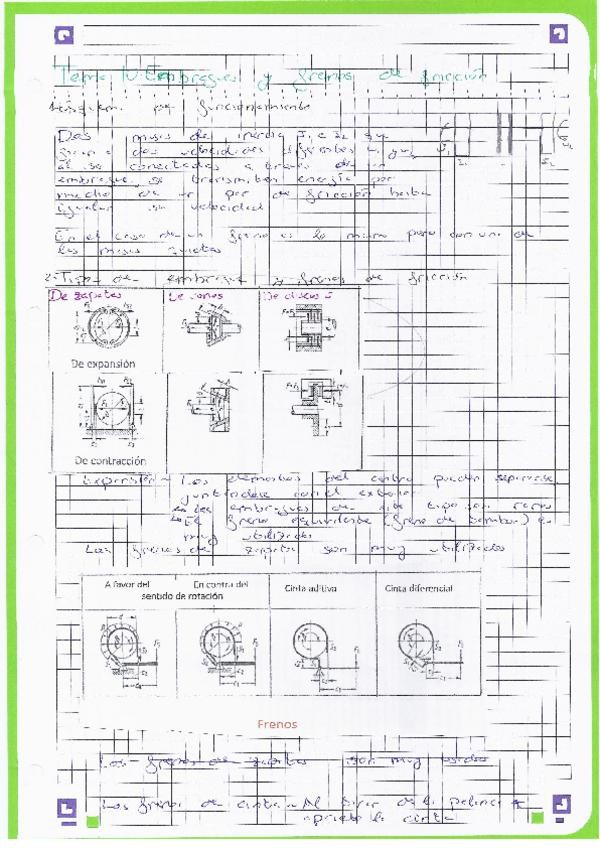 Tema IV: Embragues y frenos de fricción
de funcionamiento
Dos masas de inercia I1 e I2 que
giran a dos velocidades diferentes
al ser conectadas a través de un
embrague, se transmiten energía por
medio de un par de fricción hasta
igualar su velocidad
En el caso de un freno es lo mismo pero con una de
las masas quietas
2-Tipos de embragues y frenos de fricción
De zapatas De conos De discos
De expansión
De contracción
Expansión → Los elementos del centro pueden separarse
juntándose con el exterior
Los embragues de este tipo son raros
El freno equivalente (freno de tambor) es
muy utilizado
Los frenos de zapata son muy utilizados
A favor del En contra del Cinta aditiva Cinta diferencial
sentido de rotación
Frenos
Los frenos de zapatas son muy usados
Los frenos de cinta → Al tirar de la palanca se
aprieta la cinta